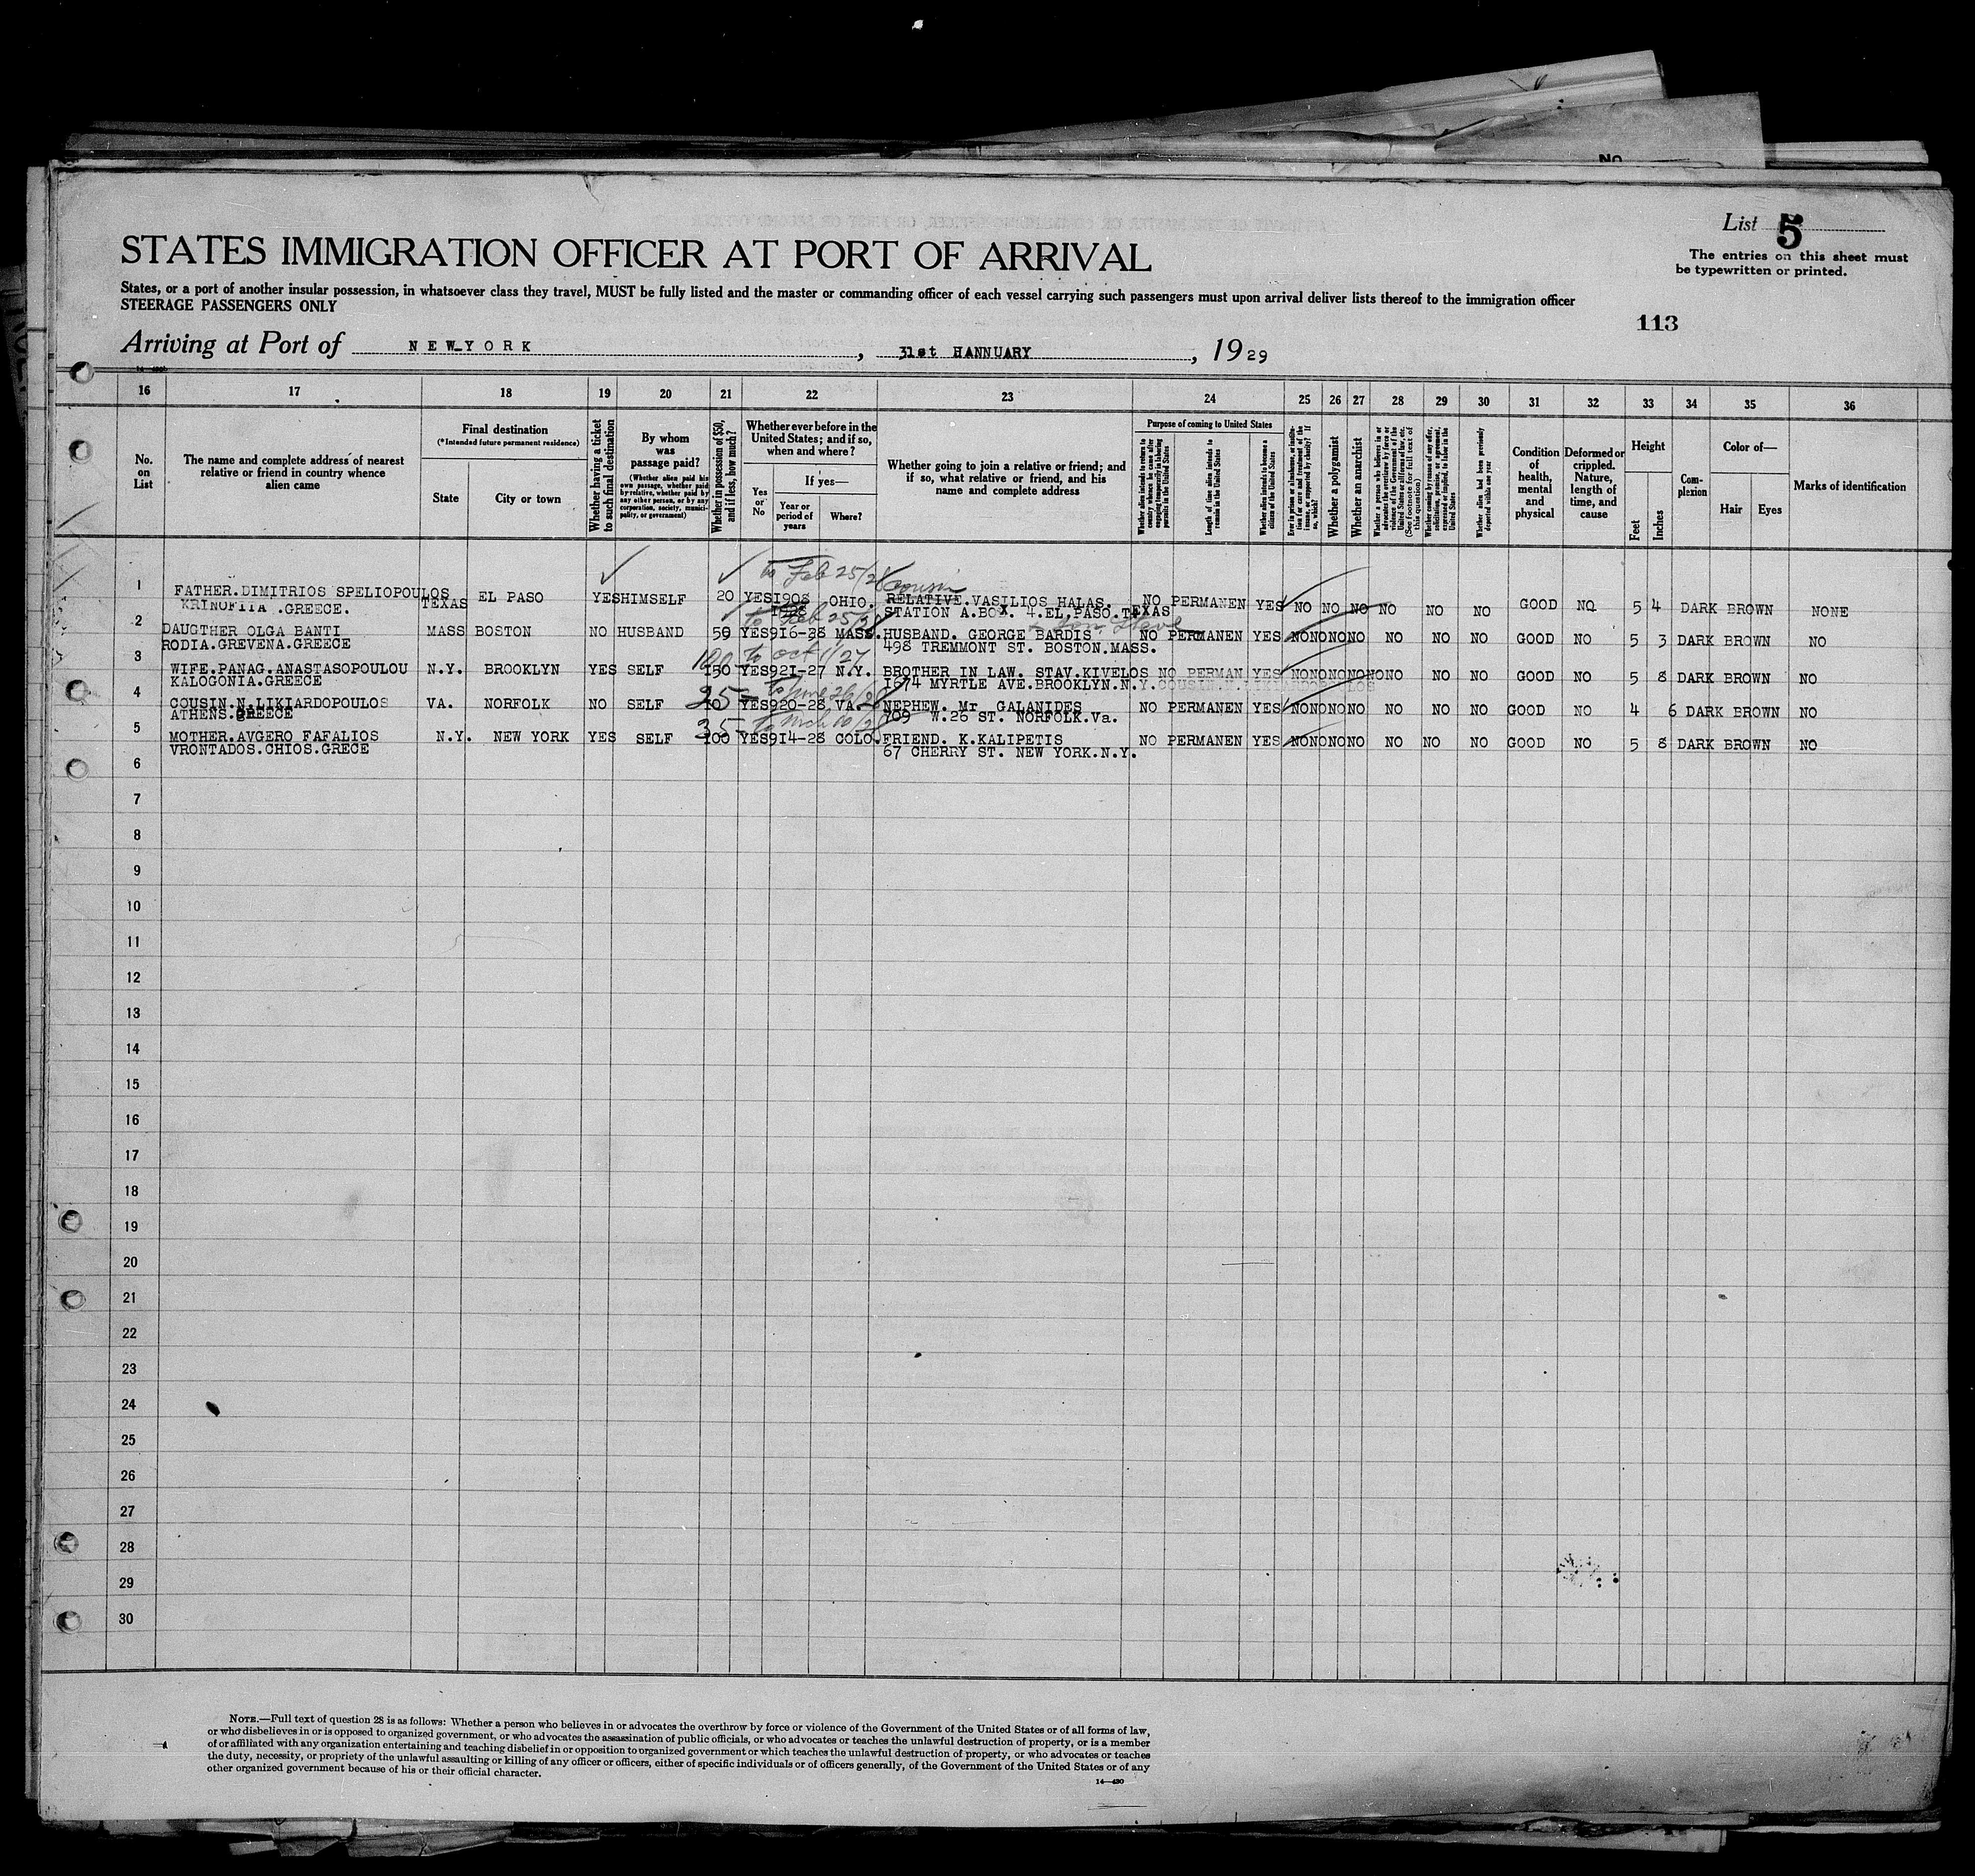 No
List 5
The entries on this sheet must
be typewritten or printed.
STATES IMMIGRATION OFFICER AT PORT OF ARRIVAL
States, or a port of another insular possession, in whatsoever class they travel, MUST be fully listed and the master or commanding officer of each vessel carrying such passengers must upon arrival deliver lists thereof to the immigration officer
STEERAGE PASSENGERS ONLY
113
Arriving at Port of NEW YORK, 31st HANNUARY, 1929
16 17 18 19 20 21 22 23 24 25 26 27 28 29 30 31 32 33 34 35 36
No. on List
The name and complete address of nearest relative or friend in country whence alien came
Final destination
(*Intended future permanent residence)
State
City or town
Whether having a ticket to such final destination
By whom was passage paid?
(Whether alien paid his own passage, whether paid by relative, whether paid by any other person, or by any corporation, society, municipality, or government)
Whether in possession of $50, and if less, how much?
Whether ever before in the United States; and if so, when and where?
Yes or No
If yes—
Year or period of years
Where?
Whether going to join a relative or friend; and if so, what relative or friend, and his name and complete address
Purpose of coming to United States
Whether alien intends to return to country whence he came after engaging temporarily in laboring pursuits in the United States
Length of time alien intends to remain in the United States
Whether alien intends to become a citizen of the United States
Ever in prison or almshouse, or institution for care and treatment of the insane, or supported by charity? If so, which?
Whether a polygamist
Whether an anarchist
Whether a person who believes in or advocates the overthrow by force or violence of the Government of the United States or all forms of law, etc. (See footnote for full text of this question)
Whether coming by reason of any offer, solicitation, promise, or agreement, expressed or implied, to labor in the United States
Whether alien had been previously deported within one year
Condition of health, mental and physical
Deformed or crippled. Nature, length of time, and cause
Height
Feet
Inches
Complexion
Color of—
Hair
Eyes
Marks of identification
to Feb 25/28 cousin
1 FATHER.DIMITRIOS SPELIOPOULOS TEXAS EL PASO YES HIMSELF 20 YES 1908 OHIO. RELATIVE.VASILIOS HALAS. NO PERMANEN YES NO NO NO NO NO NO GOOD NO 5 4 DARK BROWN NONE
KRINOFITA .GREECE. 1928 STATION A.BOX. 4.EL,PASO.TEXAS
to Feb 25/28 + son Steve
2 DAUGTHER OLGA BANTI MASS BOSTON NO HUSBAND 50 YES 916-28 MASS. HUSBAND. GEORGE BARDIS NO PERMANEN YES NO NO NO NO NO NO GOOD NO 5 3 DARK BROWN NO
RODIA.GREVENA.GREECE 498 TREMMONT ST. BOSTON.MASS.
100 to oct 1/27
3 WIFE.PANAG.ANASTASOPOULOU N.Y. BROOKLYN YES SELF 150 YES 921-27 N.Y. BROTHER IN LAW. STAV.KIVELOS NO PERMAN YES NO NO NO NO NO NO GOOD NO 5 8 DARK BROWN NO
KALOGONIA.GREECE 1674 MYRTLE AVE.BROOKLYN.N.Y.
25 to June 26/28
4 COUSIN.N.LIKIARDOPOULOS VA. NORFOLK NO SELF YES 920-28 VA. NEPHEW. Mr GALANIDES NO PERMANEN YES NO NO NO NO NO NO GOOD NO 4 6 DARK BROWN NO
ATHENS.GREECE 709 W.26 ST. NORFOLK.Va.
35 to Mch 10/28
5 MOTHER.AVGERO FAFALIOS N.Y. NEW YORK YES SELF 100 YES 914-28 COLO. FRIEND. K.KALIPETIS NO PERMANEN YES NO NO NO NO NO NO GOOD NO 5 8 DARK BROWN NO
VRONTADOS.CHIOS.GRECE 67 CHERRY ST. NEW YORK.N.Y.
6
7
8
9
10
11
12
13
14
15
16
17
18
19
20
21
22
23
24
25
26
27
28
29
30
NOTE.—Full text of question 28 is as follows: Whether a person who believes in or advocates the overthrow by force or violence of the Government of the United States or of all forms of law,
or who disbelieves in or is opposed to organized government, or who advocates the assassination of public officials, or who advocates or teaches the unlawful destruction of property, or is a member
of or affiliated with any organization entertaining and teaching disbelief in or opposition to organized government or which teaches the unlawful destruction of property, or who advocates or teaches
the duty, necessity, or propriety of the unlawful assaulting or killing of any officer or officers, either of specific individuals or of officers generally, of the Government of the United States or of any
other organized government because of his or their official character.
14—430